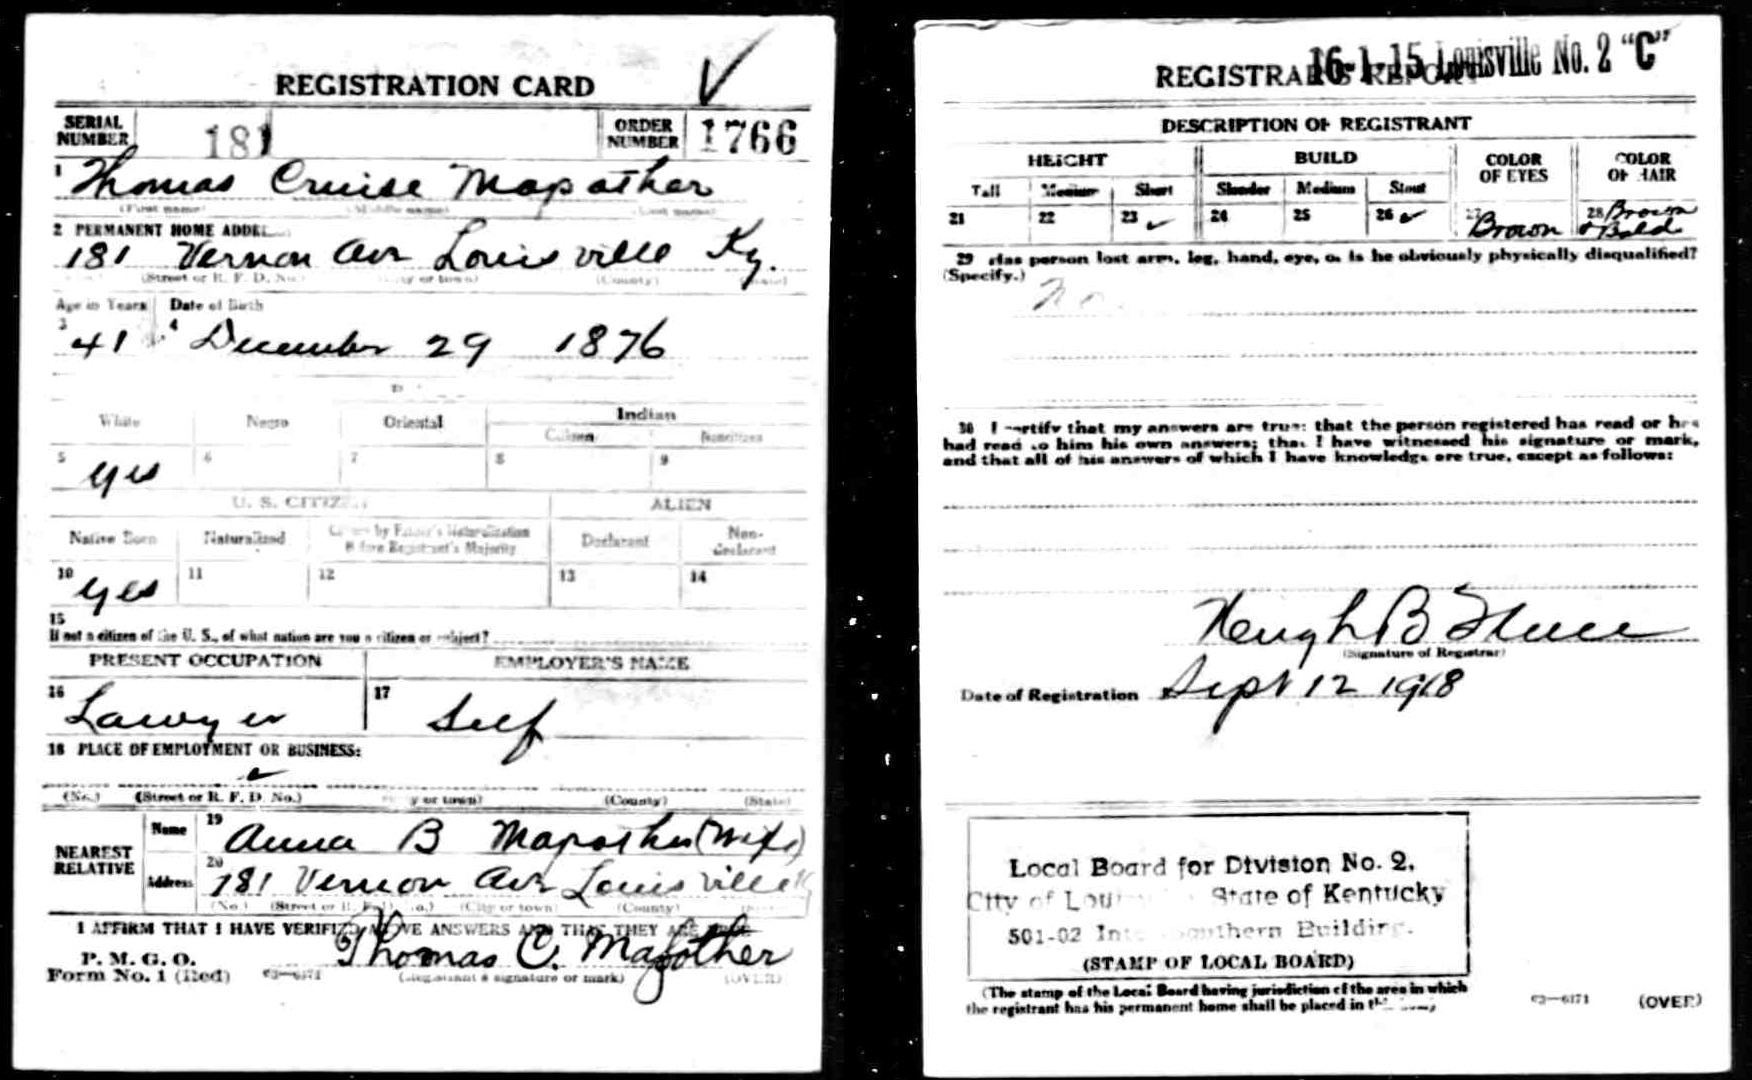 REGISTRATION CARD
SERIAL NUMBER 181 ORDER NUMBER 1766
1 Thomas Cruise Mapother
(First name) (Middle name) (Last name)
2 PERMANENT HOME ADDRE
181 Vernon Ave Louisville Ky.
(Street or R. F. D. No.) (City or town) (County) (State)
Age in Years Date of Birth
3 41 4 December 29 1876
White Negro Oriental Indian
Citizen Noncitizen
5 yes 6 7 8 9
U. S. CITIZEN ALIEN
Native Born Naturalized Citizen by Father's Naturalization Before Registrant's Majority Declarant Non-declarant
10 yes 11 12 13 14
15
If not a citizen of the U. S., of what nation are you a citizen or subject?
PRESENT OCCUPATION EMPLOYER'S NAME
16 Lawyer 17 Self
18 PLACE OF EMPLOYMENT OR BUSINESS:
(No.) (Street or R. F. D. No.) (City or town) (County) (State)
NEAREST RELATIVE Name 19 Anna B Mapother (Wife)
Address 20 181 Vernon Ave Louisville
(No.) (Street or R. F. D. No.) (City or town) (County)
I AFFIRM THAT I HAVE VERIFIED ABOVE ANSWERS AND THAT THEY ARE TRUE
P. M. G. O.
Form No. 1 (Red) 03—6171 Thomas C. Mapother
(Registrant's signature or mark) (OVER)
REGISTRAR'S REPORT 16-1-15 Louisville No. 2 "C"
DESCRIPTION OF REGISTRANT
HEIGHT BUILD COLOR OF EYES COLOR OF HAIR
Tall Medium Short Slender Medium Stout
21 22 23 ✓ 24 25 26 ✓ 27 Brown 28 Brown & Bald
29 Has person lost arm, leg, hand, eye, or is he obviously physically disqualified?
(Specify.)
No.
30 I certify that my answers are true; that the person registered has read or has
had read to him his own answers; that I have witnessed his signature or mark,
and that all of his answers of which I have knowledge are true, except as follows:
(Signature of Registrar)
Date of Registration Sept 12 1918
Local Board for Division No. 2,
City of Lou State of Kentucky
501-02 Inter Southern Building.
(STAMP OF LOCAL BOARD)
(The stamp of the Local Board having jurisdiction of the area in which
the registrant has his permanent home shall be placed in
03—6171 (OVER)